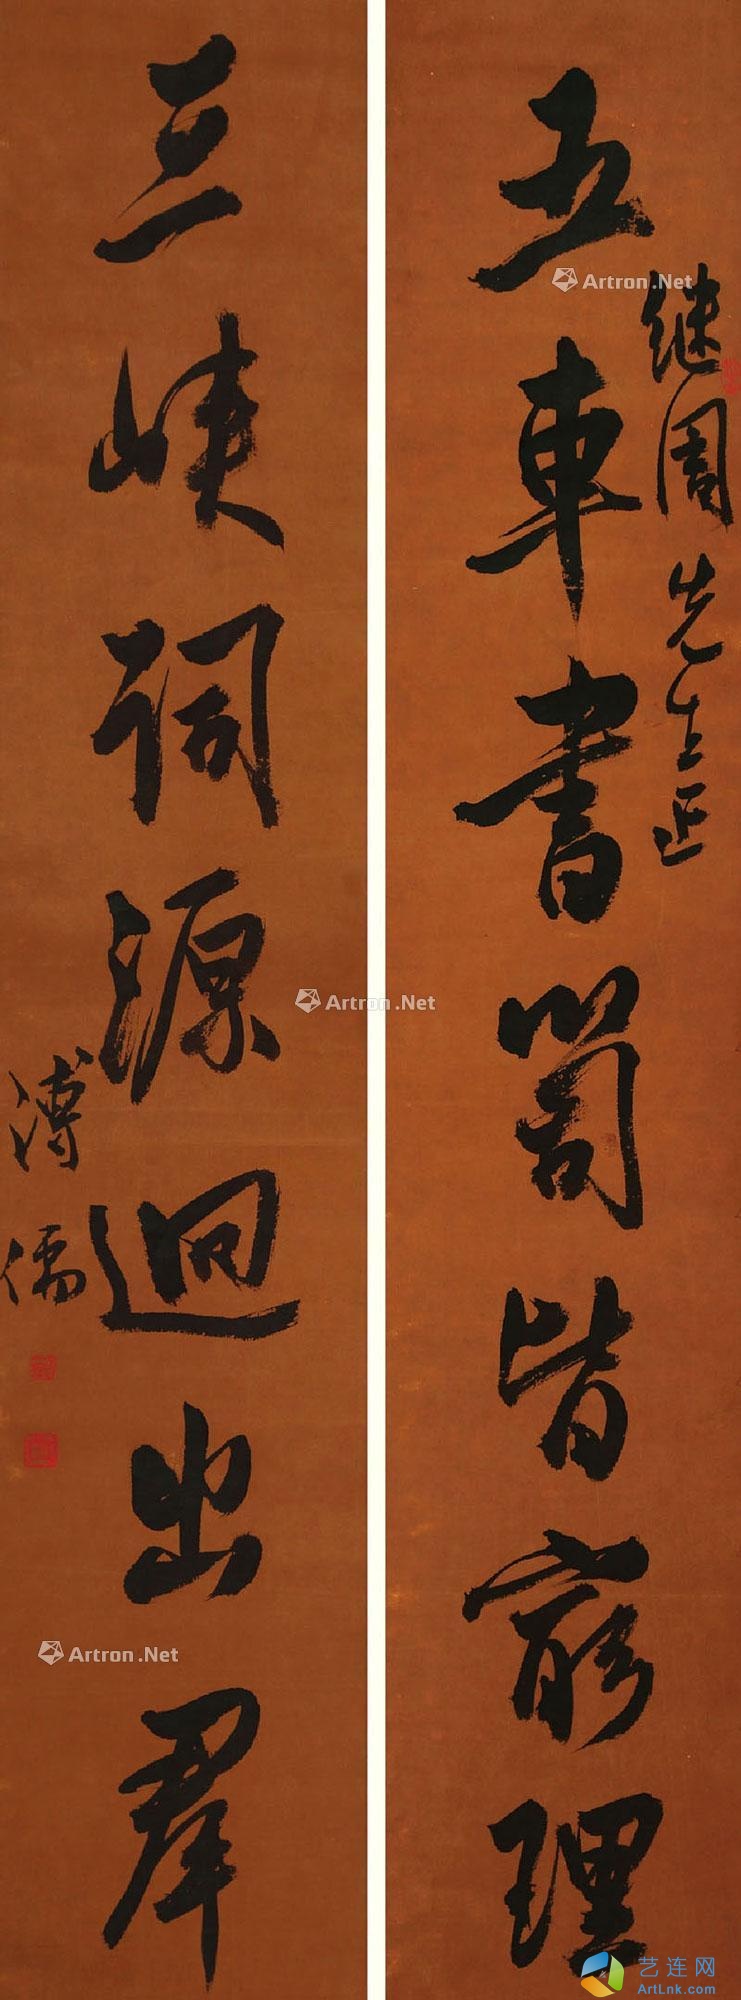 继周先生正
五車書笥皆窮理
三峽詞源逈出羣
溥儒
Artron.Net
Artron.Net
Artron.Net
艺连网
ArtLnk.com